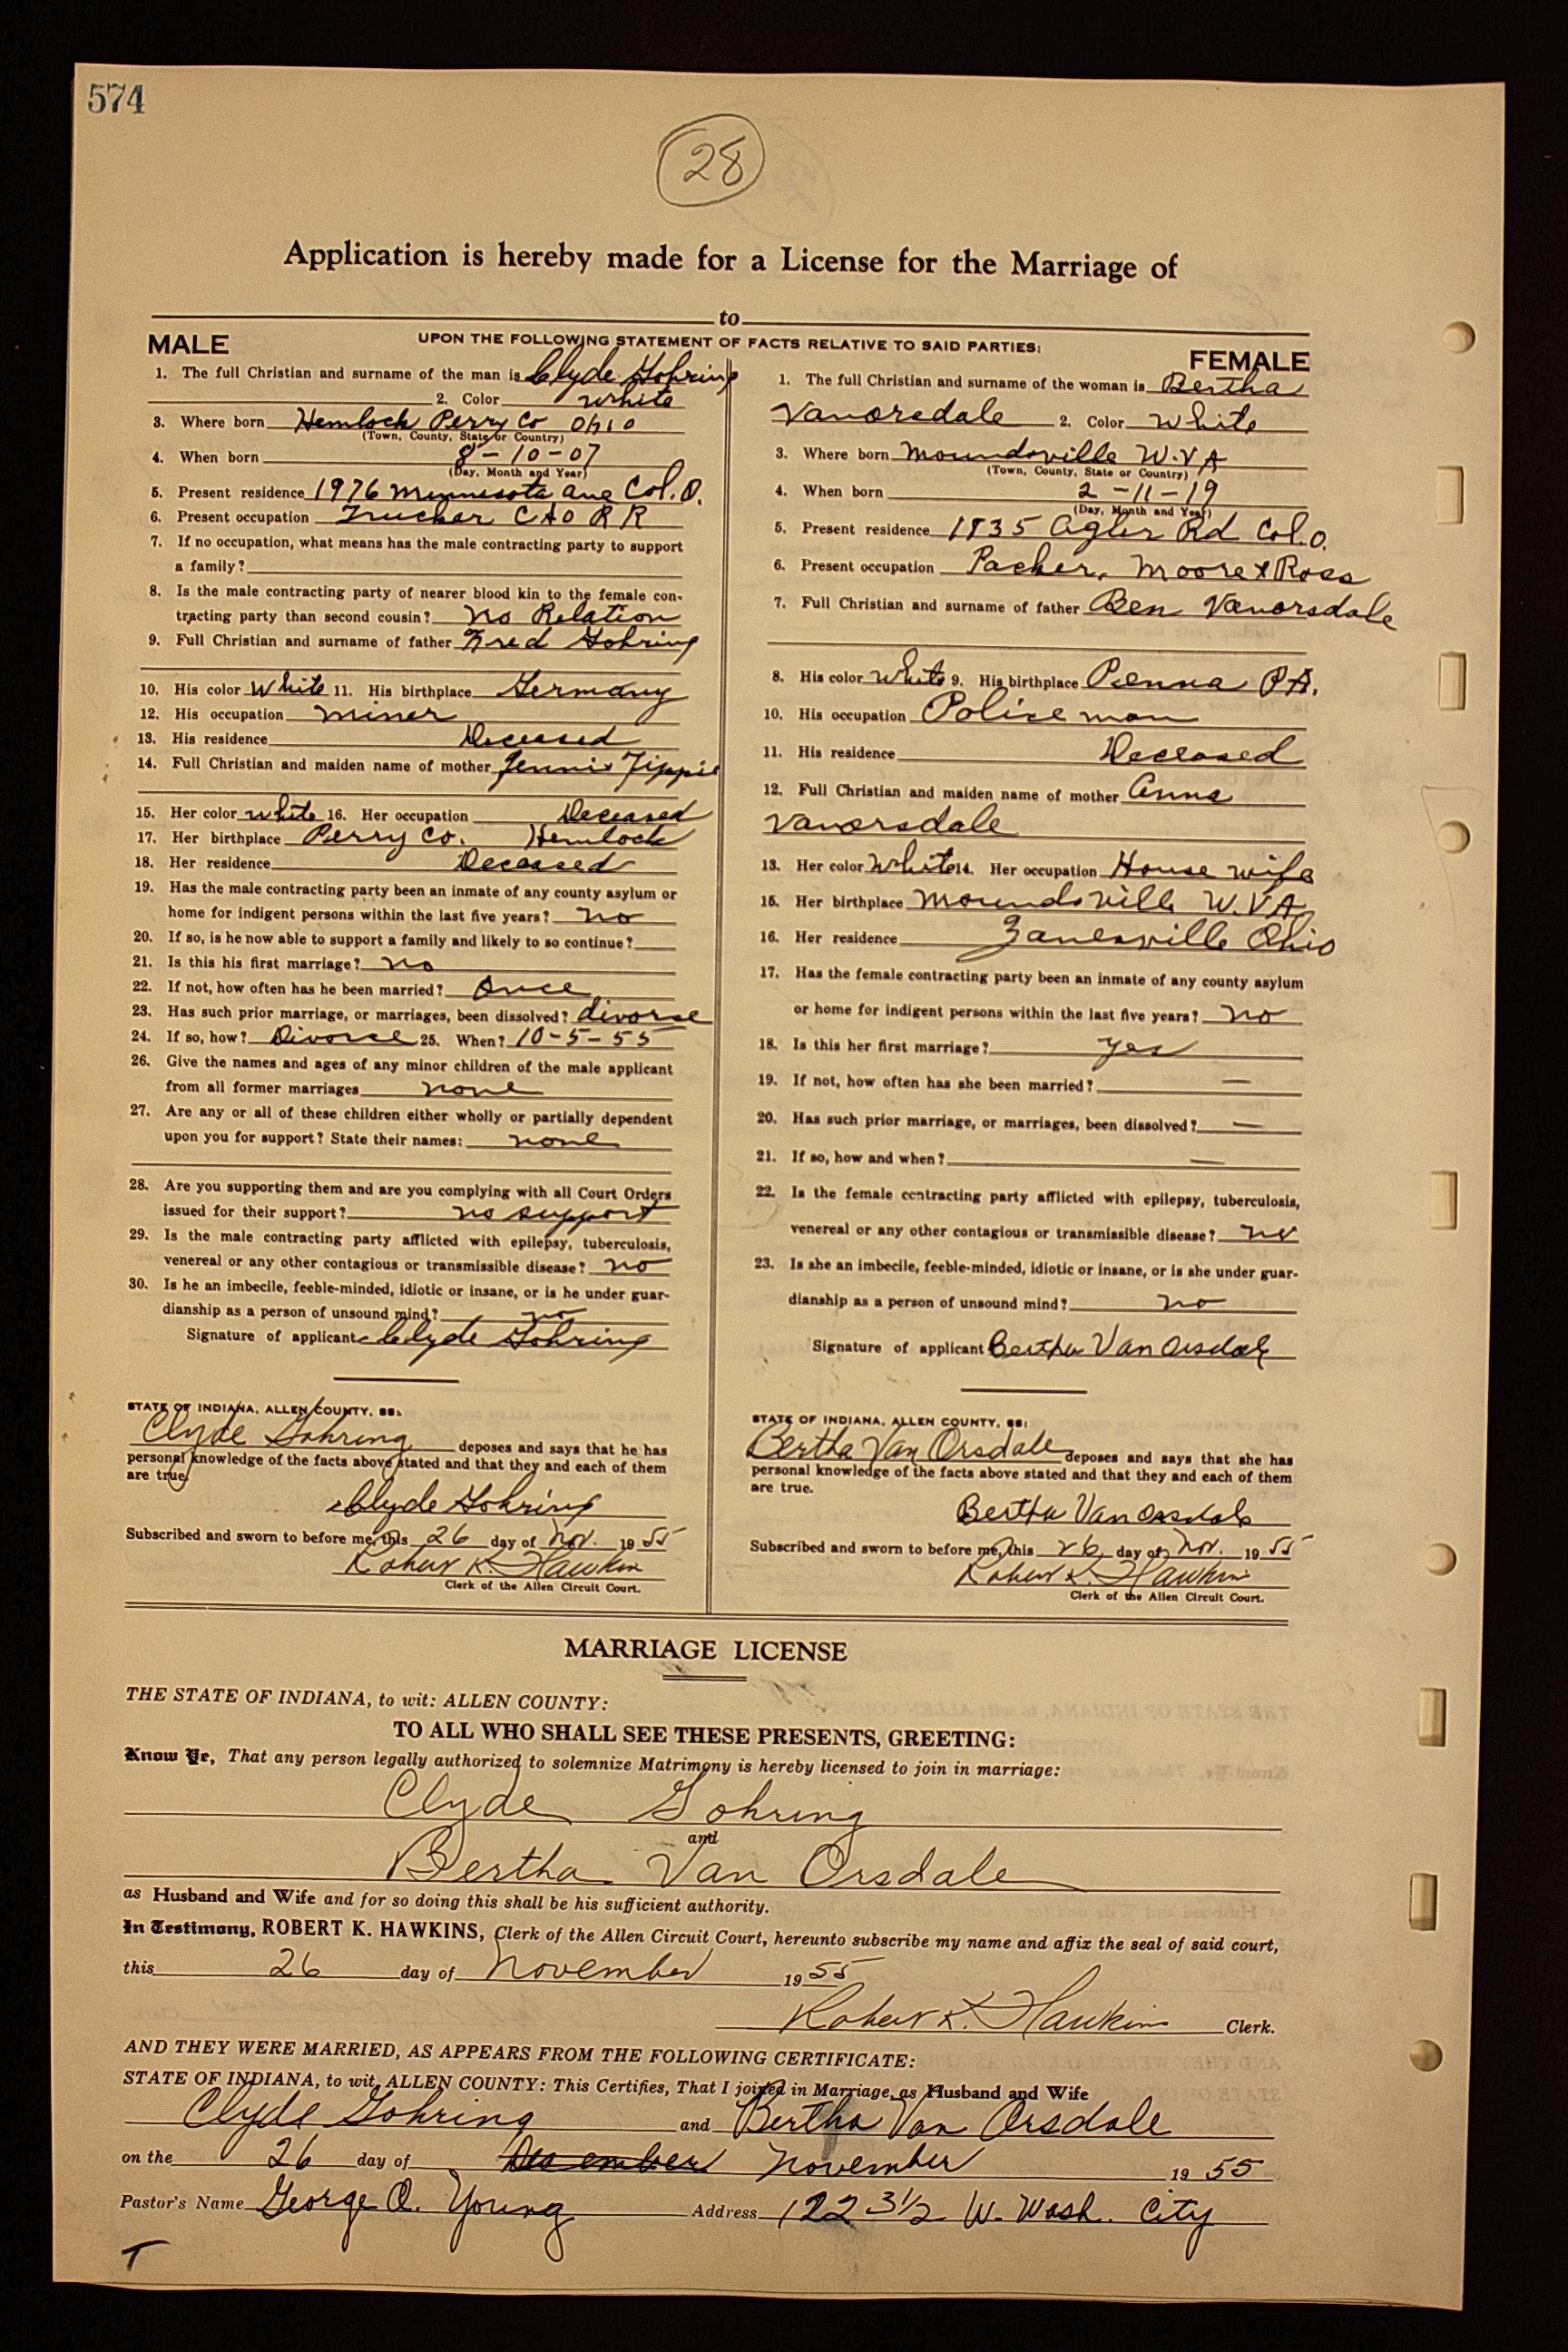 574
28
Application is hereby made for a License for the Marriage of
to
UPON THE FOLLOWING STATEMENT OF FACTS RELATIVE TO SAID PARTIES:
MALE
1. The full Christian and surname of the man is Clyde Gohring
2. Color white
3. Where born Hemlock Perry Co Ohio
(Town, County, State or Country)
4. When born 8-10-07
(Day, Month and Year)
5. Present residence 1976 Minnesota ave Col. O.
6. Present occupation Trucker C&O R R
7. If no occupation, what means has the male contracting party to support
a family?
8. Is the male contracting party of nearer blood kin to the female con-
tracting party than second cousin? no Relation
9. Full Christian and surname of father Fred Gohring
10. His color white 11. His birthplace Germany
12. His occupation miner
13. His residence Deceased
14. Full Christian and maiden name of mother Jennie
15. Her color white 16. Her occupation Deceased
17. Her birthplace Perry Co. Hemlock
18. Her residence Deceased
19. Has the male contracting party been an inmate of any county asylum or
home for indigent persons within the last five years? no
20. If so, is he now able to support a family and likely to so continue?
21. Is this his first marriage? no
22. If not, how often has he been married? Once
23. Has such prior marriage, or marriages, been dissolved? divorse
24. If so, how? Divorse 25. When? 10-5-55
26. Give the names and ages of any minor children of the male applicant
from all former marriages none
27. Are any or all of these children either wholly or partially dependent
upon you for support? State their names: none
28. Are you supporting them and are you complying with all Court Orders
issued for their support? no support
29. Is the male contracting party afflicted with epilepsy, tuberculosis,
venereal or any other contagious or transmissible disease? no
30. Is he an imbecile, feeble-minded, idiotic or insane, or is he under guar-
dianship as a person of unsound mind? no
Signature of applicant Clyde Gohring
STATE OF INDIANA, ALLEN COUNTY, SS:
Clyde Gohring deposes and says that he has
personal knowledge of the facts above stated and that they and each of them
are true.
Clyde Gohring
Subscribed and sworn to before me, this 26 day of Nov. 1955
Robert K. Hawkins
Clerk of the Allen Circuit Court.
FEMALE
1. The full Christian and surname of the woman is Bertha
Vanorsdale 2. Color White
3. Where born Moundsville W.VA
(Town, County, State or Country)
4. When born 2-11-19
(Day, Month and Year)
5. Present residence 1835 Agler Rd Col. O.
6. Present occupation Packer, Moore & Ross
7. Full Christian and surname of father Ben Vanorsdale
8. His color White 9. His birthplace Penna PA.
10. His occupation Police man
11. His residence Deceased
12. Full Christian and maiden name of mother Anna
Vanorsdale
13. Her color White 14. Her occupation House wife
15. Her birthplace Moundsville W.VA.
16. Her residence Zanesville Ohio
17. Has the female contracting party been an inmate of any county asylum
or home for indigent persons within the last five years? no
18. Is this her first marriage? yes
19. If not, how often has she been married? —
20. Has such prior marriage, or marriages, been dissolved? —
21. If so, how and when? —
22. Is the female contracting party afflicted with epilepsy, tuberculosis,
venereal or any other contagious or transmissible disease? no
23. Is she an imbecile, feeble-minded, idiotic or insane, or is she under guar-
dianship as a person of unsound mind? no
Signature of applicant Bertha Van Orsdale
STATE OF INDIANA, ALLEN COUNTY, SS:
Bertha Van Orsdale deposes and says that she has
personal knowledge of the facts above stated and that they and each of them
are true.
Bertha Van Orsdale
Subscribed and sworn to before me, this 26 day of Nov. 1955
Robert K. Hawkins
Clerk of the Allen Circuit Court.
MARRIAGE LICENSE
THE STATE OF INDIANA, to wit: ALLEN COUNTY:
TO ALL WHO SHALL SEE THESE PRESENTS, GREETING:
Know Ye, That any person legally authorized to solemnize Matrimony is hereby licensed to join in marriage:
Clyde Gohring
and
Bertha Van Orsdale
as Husband and Wife and for so doing this shall be his sufficient authority.
In Testimony, ROBERT K. HAWKINS, Clerk of the Allen Circuit Court, hereunto subscribe my name and affix the seal of said court,
this 26 day of November 1955
Robert K. Hawkins Clerk.
AND THEY WERE MARRIED, AS APPEARS FROM THE FOLLOWING CERTIFICATE:
STATE OF INDIANA, to wit, ALLEN COUNTY: This Certifies, That I joined in Marriage, as Husband and Wife
Clyde Gohring and Bertha Van Orsdale
on the 26 day of December November 1955
Pastor's Name George O. Young Address 122 3 1/2 W. Wash. City
T